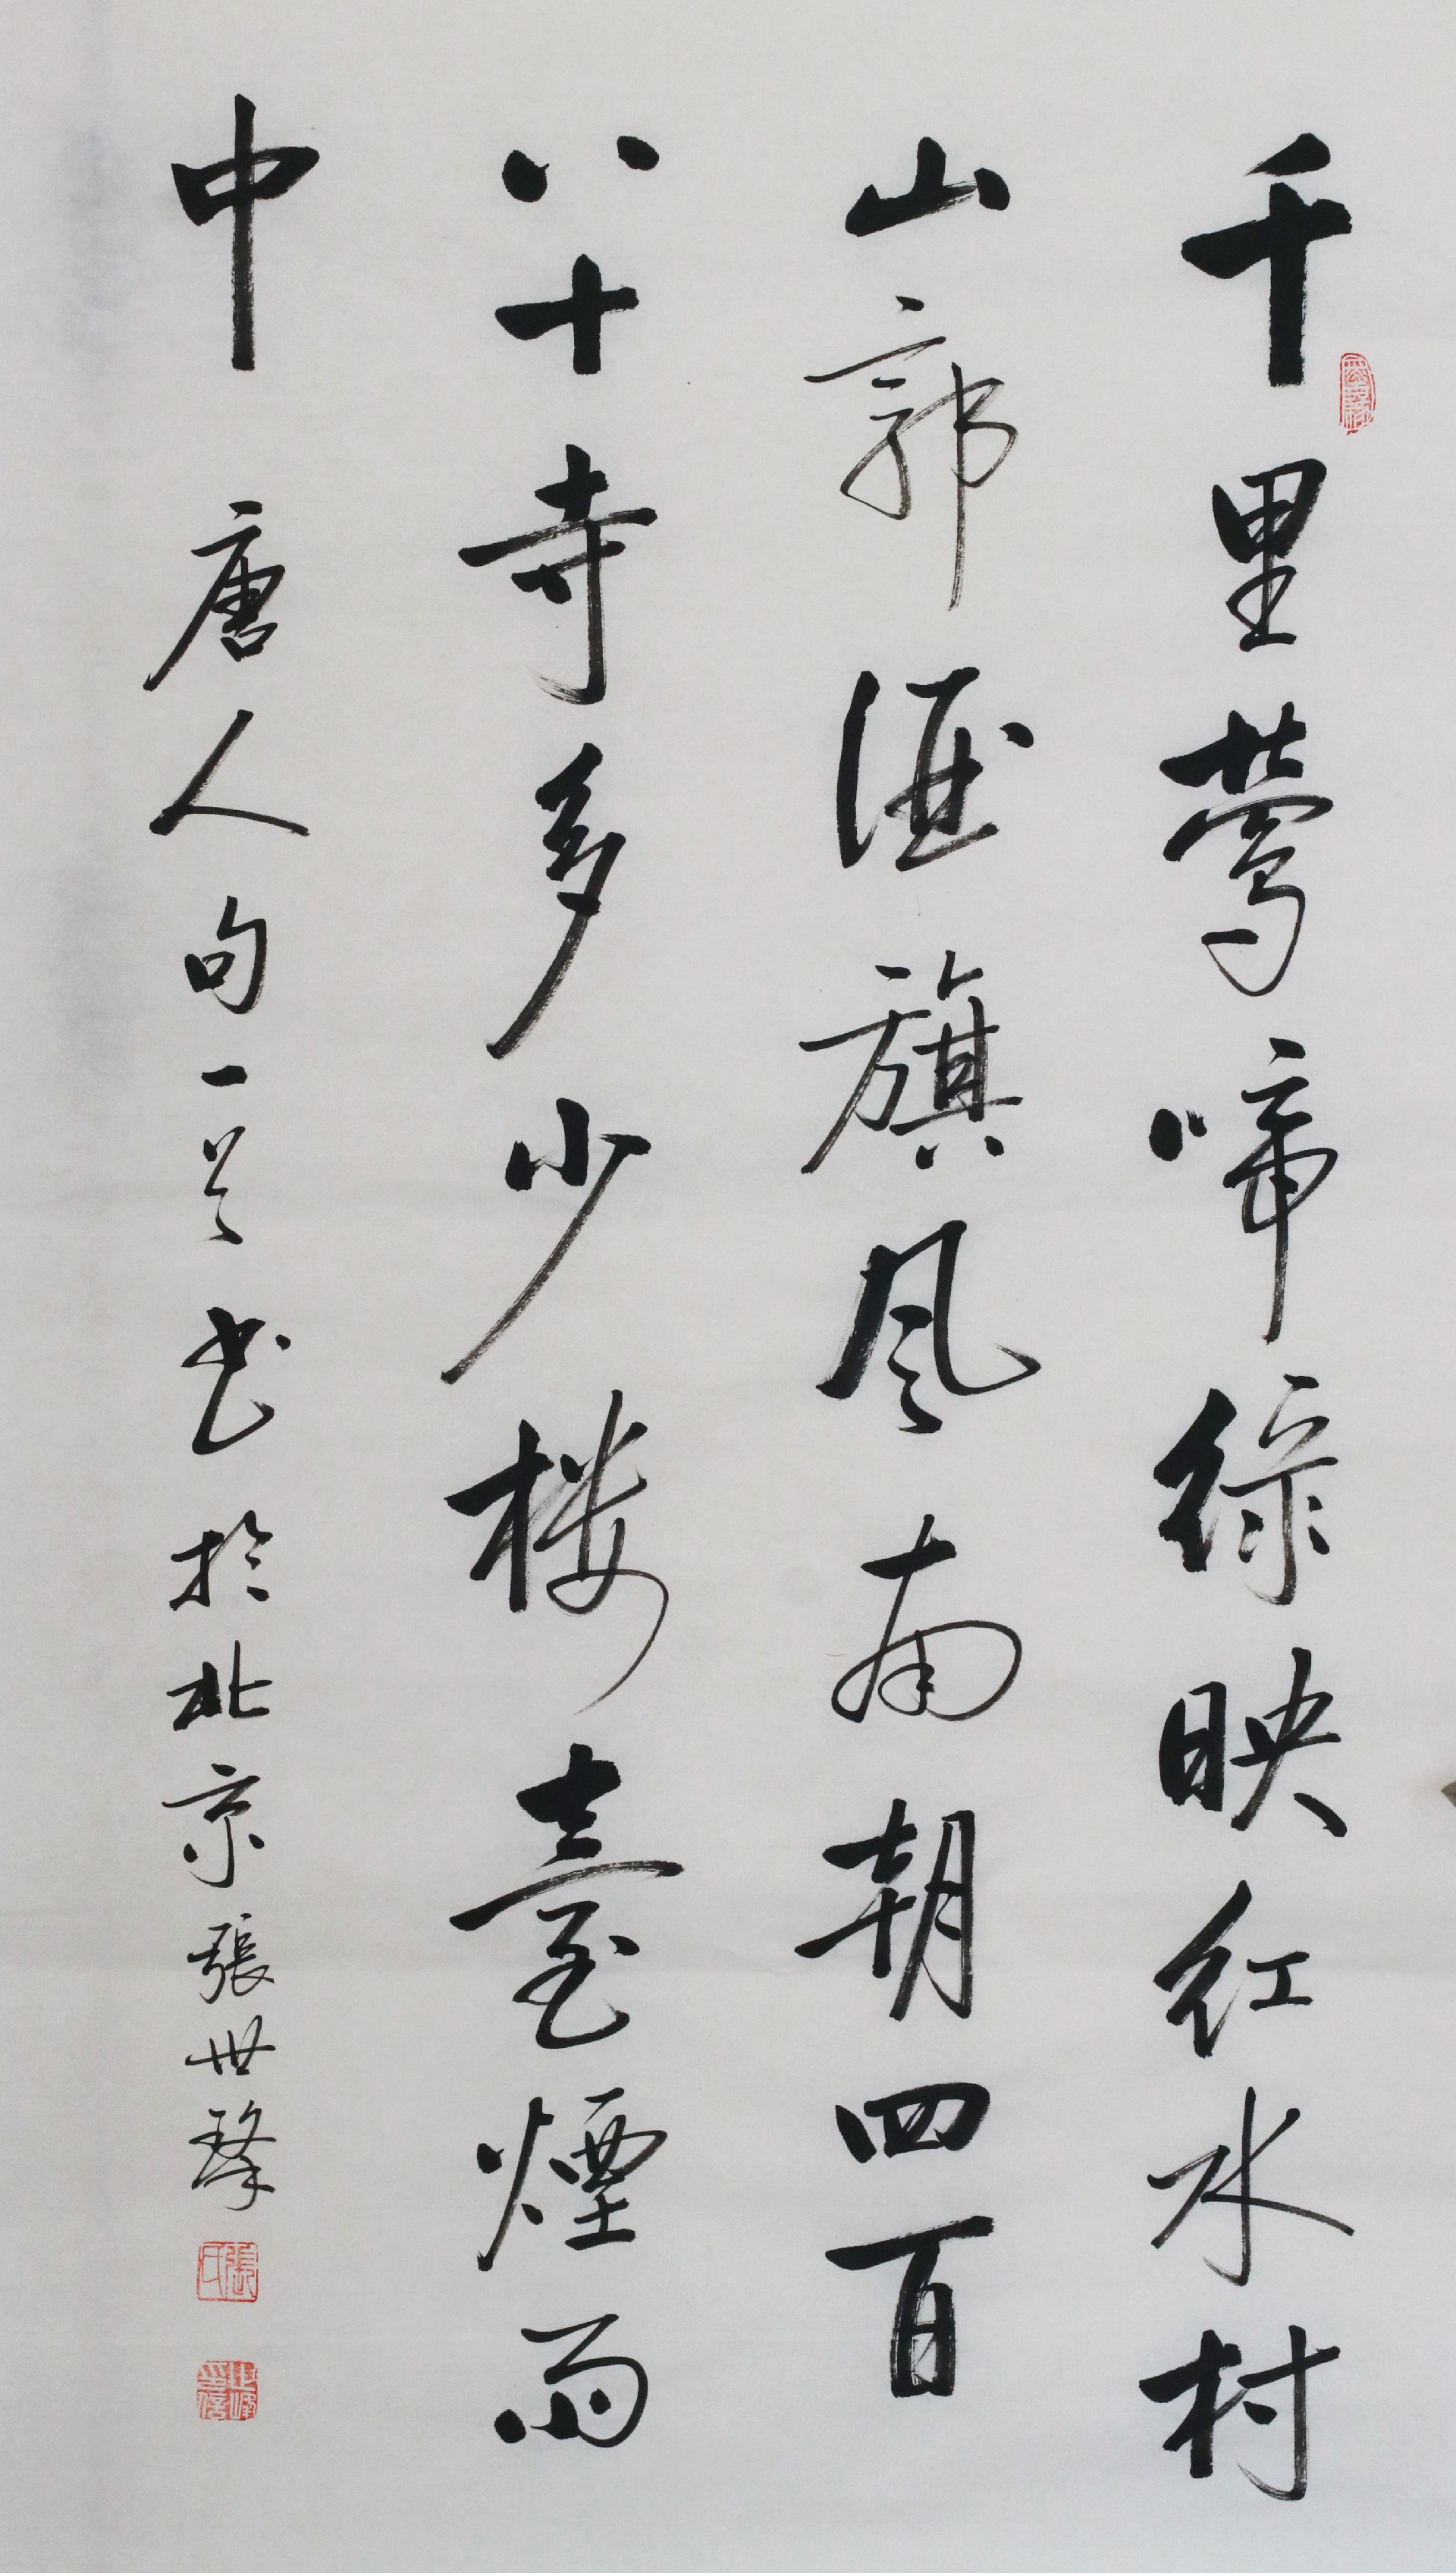 千里莺啼綠映红水村
山郭酒旗风南朝四百
八十寺多少楼臺煙雨
中
唐人句一首书於北京張世琒
張氏